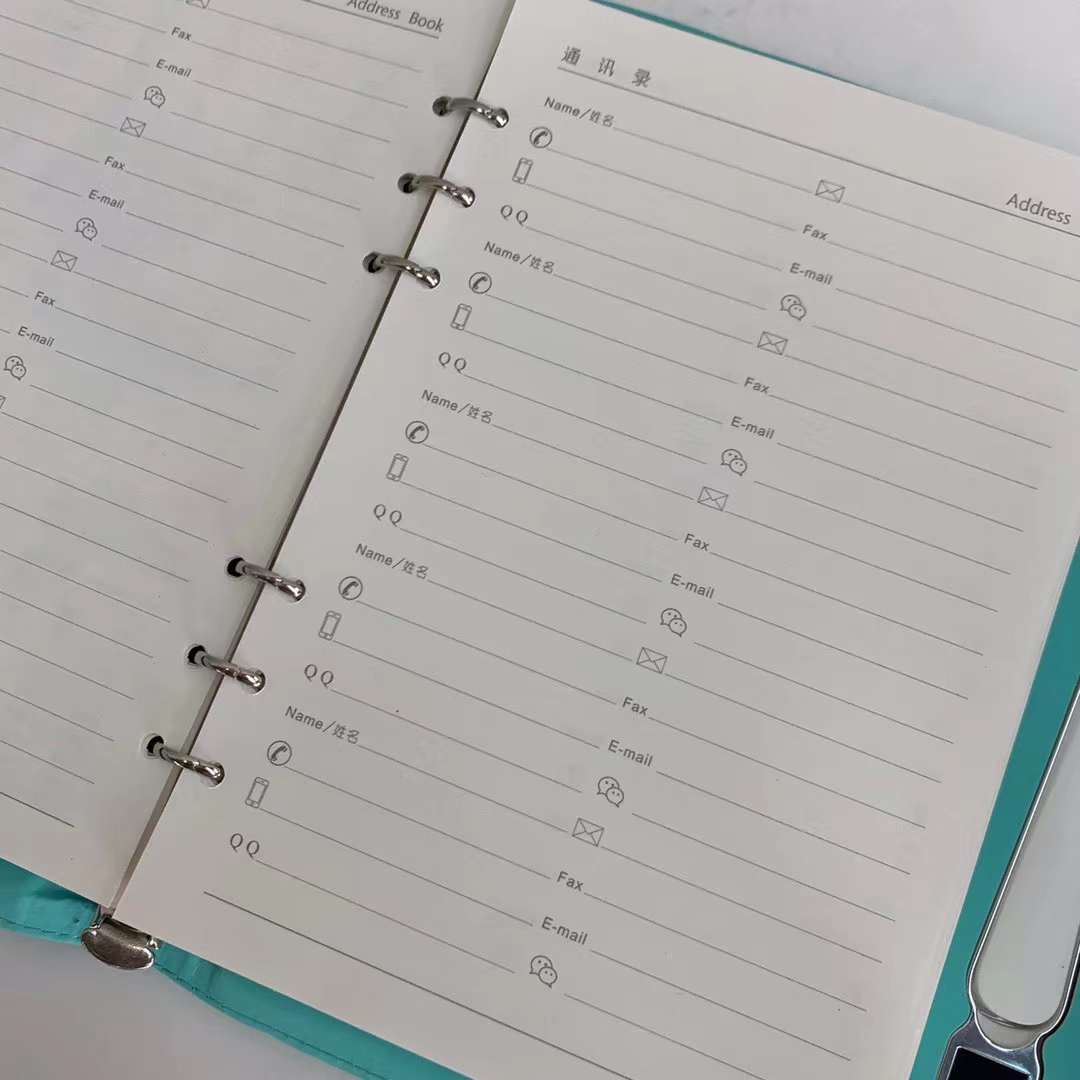 Address Book
Fax
E-mail
Fax
E-mail
Fax
E-mail
通讯录
Address
Name/姓名
Fax
QQ
E-mail
Name/姓名
Fax
QQ
E-mail
Name/姓名
Fax
QQ
E-mail
Name/姓名
Fax
QQ
E-mail
Name/姓名
Fax
QQ
E-mail